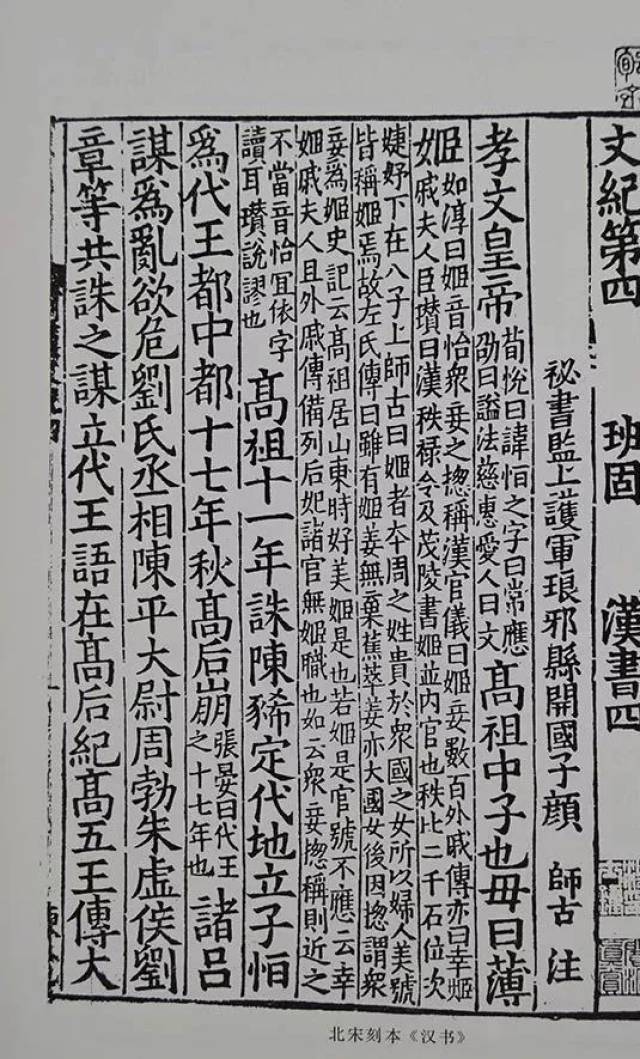 文紀第四 班固 漢書四
秘書監上護軍琅邪縣開國子顔 師古 注
孝文皇帝荀悅曰諱恒之字曰常應
劭曰謚法慈惠愛人曰文高祖中子也毋曰薄
姬如淳曰姬音怡衆妾之揔稱漢官儀曰姬妾數百外戚傳亦曰幸姬
戚夫人臣瓚曰漢秩禄令及茂陵書姬並内官也秩比二千石位次
婕妤下在八子上師古曰姬者夲周之姓貴於衆國之女所以婦人美號
皆稱姬焉故左氏傳曰雖有姬姜無棄蕉萃姜亦大國女後因揔謂衆
妾爲姬史記云髙祖居山東時好美姬是也若姬是官號不應云幸
姬戚夫人且外戚傳備列后妃諸官無姬職也如云衆妾揔稱則近之
不當音怡宜依字
讀耳瓚說謬也髙祖十一年誅陳豨定代地立子恒
爲代王都中都十七年秋髙后崩張晏曰代王
之十七年也諸吕
謀爲亂欲危劉氏丞相陳平大尉周勃朱虚侯劉
章等共誅之謀立代王語在髙后紀髙五王傳大
北宋刻本《汉书》